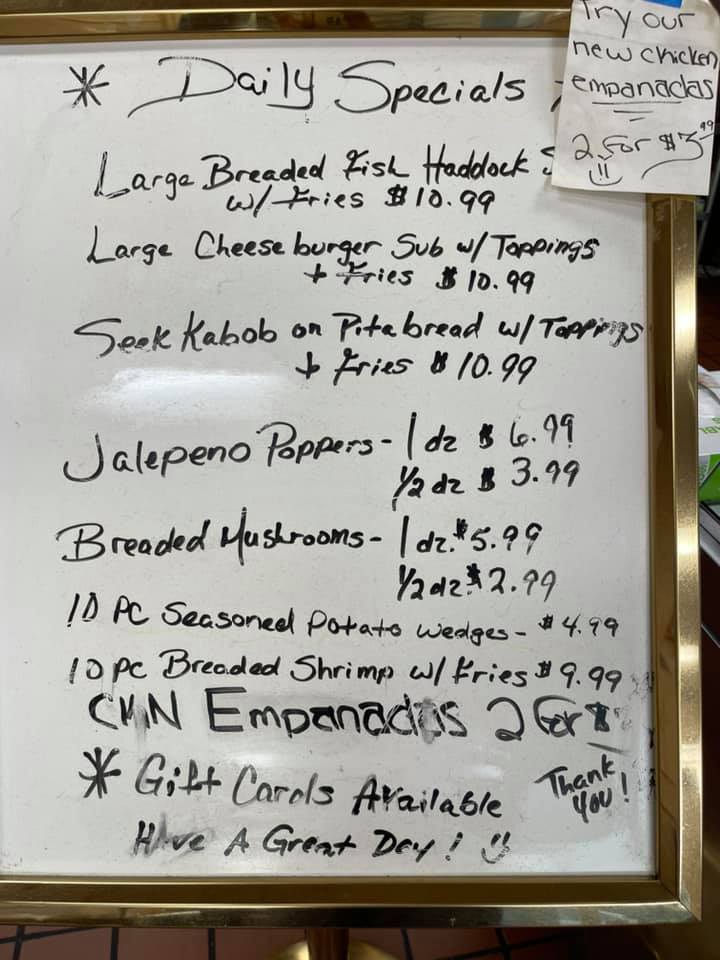 * Daily Specials
Large Breaded Fish Haddock S
w/ Fries $10.99
Large Cheeseburger Sub w/ Toppings
+ Fries $10.99
Seek Kabob on Pita bread w/ Toppings
+ Fries $10.99
Jalepeno Poppers - 1 dz $6.99
1/2 dz $3.99
Breaded Mushrooms - 1 dz. $5.99
1/2 dz. $2.99
10 PC Seasoned Potato Wedges - $4.99
10 PC Breaded Shrimp w/ Fries $9.99
CKN Empanadas 2 for $
* Gift Cards Available
Thank you!
Have A Great Day!
Try our
new chicken
empanadas
2 for $3.99